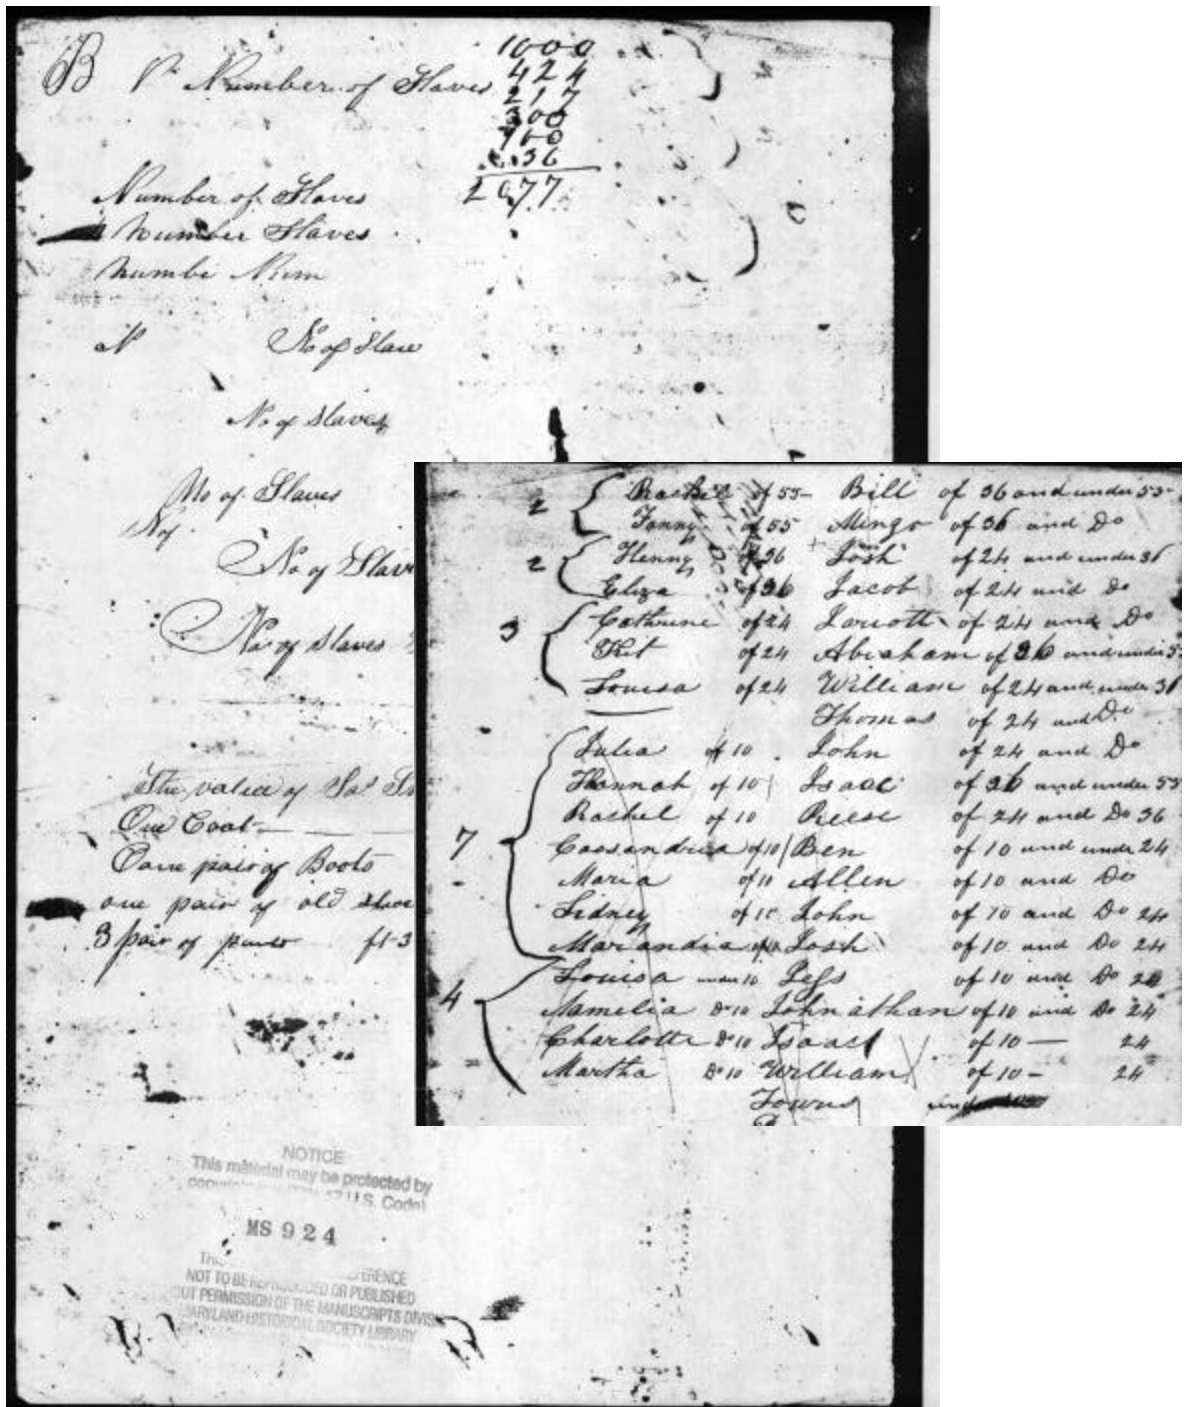 B Number of Slaves
1000
424
217
300
100
36
2077
Number of Slaves
Number Slaves
Numbe Num
N No of Slave
No of Slaves
No of Slaves
No of
No of Slav
No of Slaves
The value of
One Coat
one pair of Boots
one pair of old shoe
3 pair of
2 Rachel of 55 Bill of 36 and under 55
Fanny of 55 Mingo of 36 and Do
2 Henny of 36 Josh of 24 and under 36
Eliza of 36 Jacob of 24 and Do
3 Cathrine of 24 of 24 and Do
Kit of 24 Abraham of 36 and under 5
Louisa of 24 William of 24 and under 36
Thomas of 24 and Do
7 Julia of 10 John of 24 and Do
Hannah of 10 Isaac of 36 and under 55
Rachel of 10 Reese of 24 and Do 36
Cassandria of 10 Ben of 10 and under 24
Maria of 10 Allen of 10 and Do
Sidney of 10 John of 10 and Do 24
Mariandia of 10 Josh of 10 and Do 24
4 Louisa under 10 Jess of 10 and Do 24
Namelia Do 10 Johnathan of 10 and Do 24
Charlotte Do 10 Isaac of 10 — 24
Martha Do 10 William of 10 – 24
NOTICE
This material may be protected by
U.S. Code)
MS 924
NOT TO BE REPRODUCED OR PUBLISHED
OUT PERMISSION OF THE MANUSCRIPTS DIVIS
MARYLAND HISTORICAL SOCIETY LIBRARY